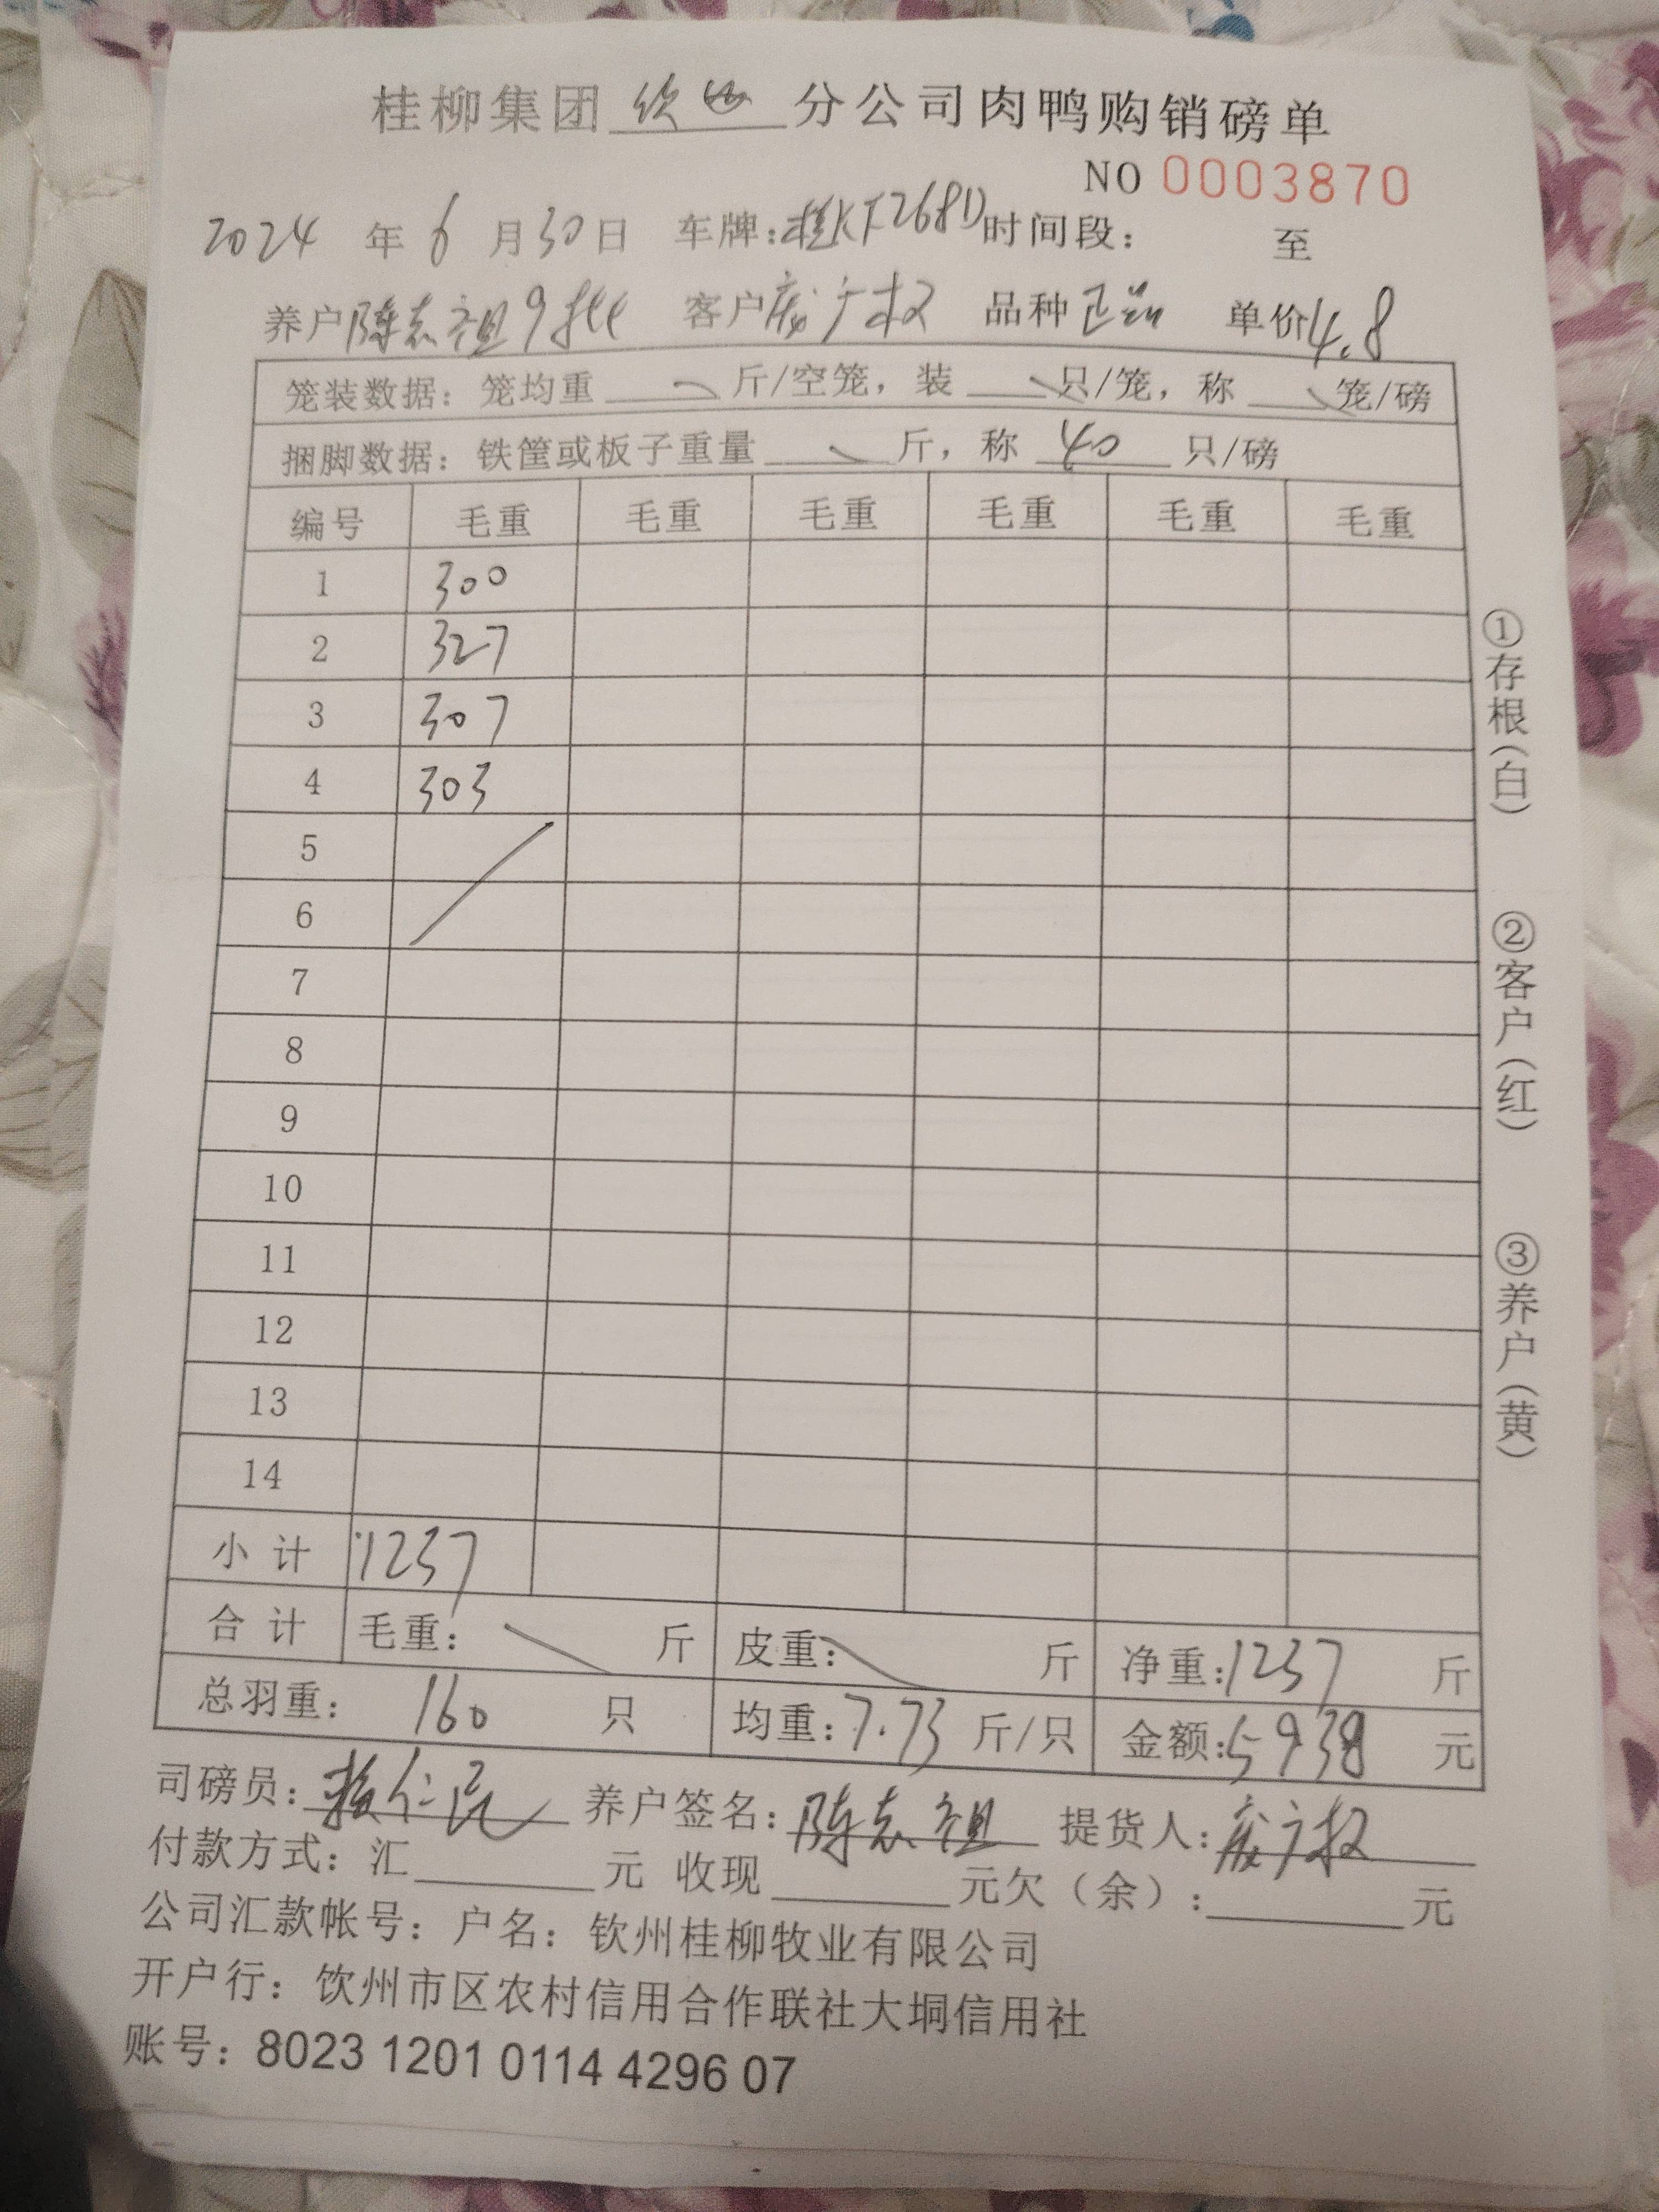 桂柳集团 钦州 分公司肉鸭购销磅单
NO 0003870
2024 年 6 月 30 日 车牌: 时间段: 至
养户 陈志祖 9批 客户 庞广权 品种 正品 单价 4.8
笼装数据: 笼均重 斤/空笼, 装 只/笼, 称 笼/磅
捆脚数据: 铁筐或板子重量 斤, 称 40 只/磅
编号 毛重 毛重 毛重 毛重 毛重 毛重
1 300
2 327
3 307
4 303
5
6
7
8
9
10
11
12
13
14
小计 1237
合计 毛重: 斤 皮重: 斤 净重: 1237 斤
总羽重: 160 只 均重: 7.73 斤/只 金额: 5938 元
司磅员: 赖仁民 养户签名: 陈志祖 提货人: 庞广权
付款方式: 汇 元 收现 元欠(余): 元
公司汇款帐号: 户名: 钦州桂柳牧业有限公司
开户行: 饮州市区农村信用合作联社大垌信用社
账号: 8023 1201 0114 4296 07
①存根(白)
②客户(红)
③养户(黄)